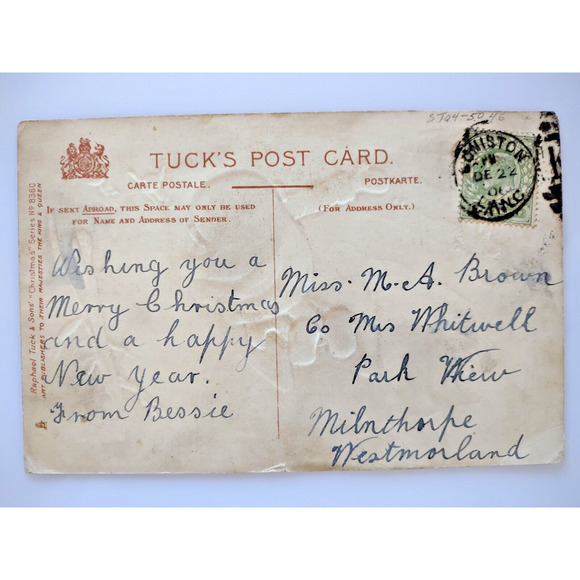 ST04-5046
TUCK'S POST CARD.
CARTE POSTALE.
POSTKARTE.
IF SENT ABROAD, THIS SPACE MAY ONLY BE USED
FOR NAME AND ADDRESS OF SENDER.
(FOR ADDRESS ONLY.)
Raphael Tuck & Sons' "Christmas" Series No 8360
ART PUBLISHERS TO THEIR MAJESTIES THE KING & QUEEN
CONISTON
DE 22
LANC.
Wishing you a
Merry Christmas
and a happy
New Year.
From Bessie
Miss. M. A. Brown
Co Mrs Whitwell
Park View
Milnthorpe
Westmorland